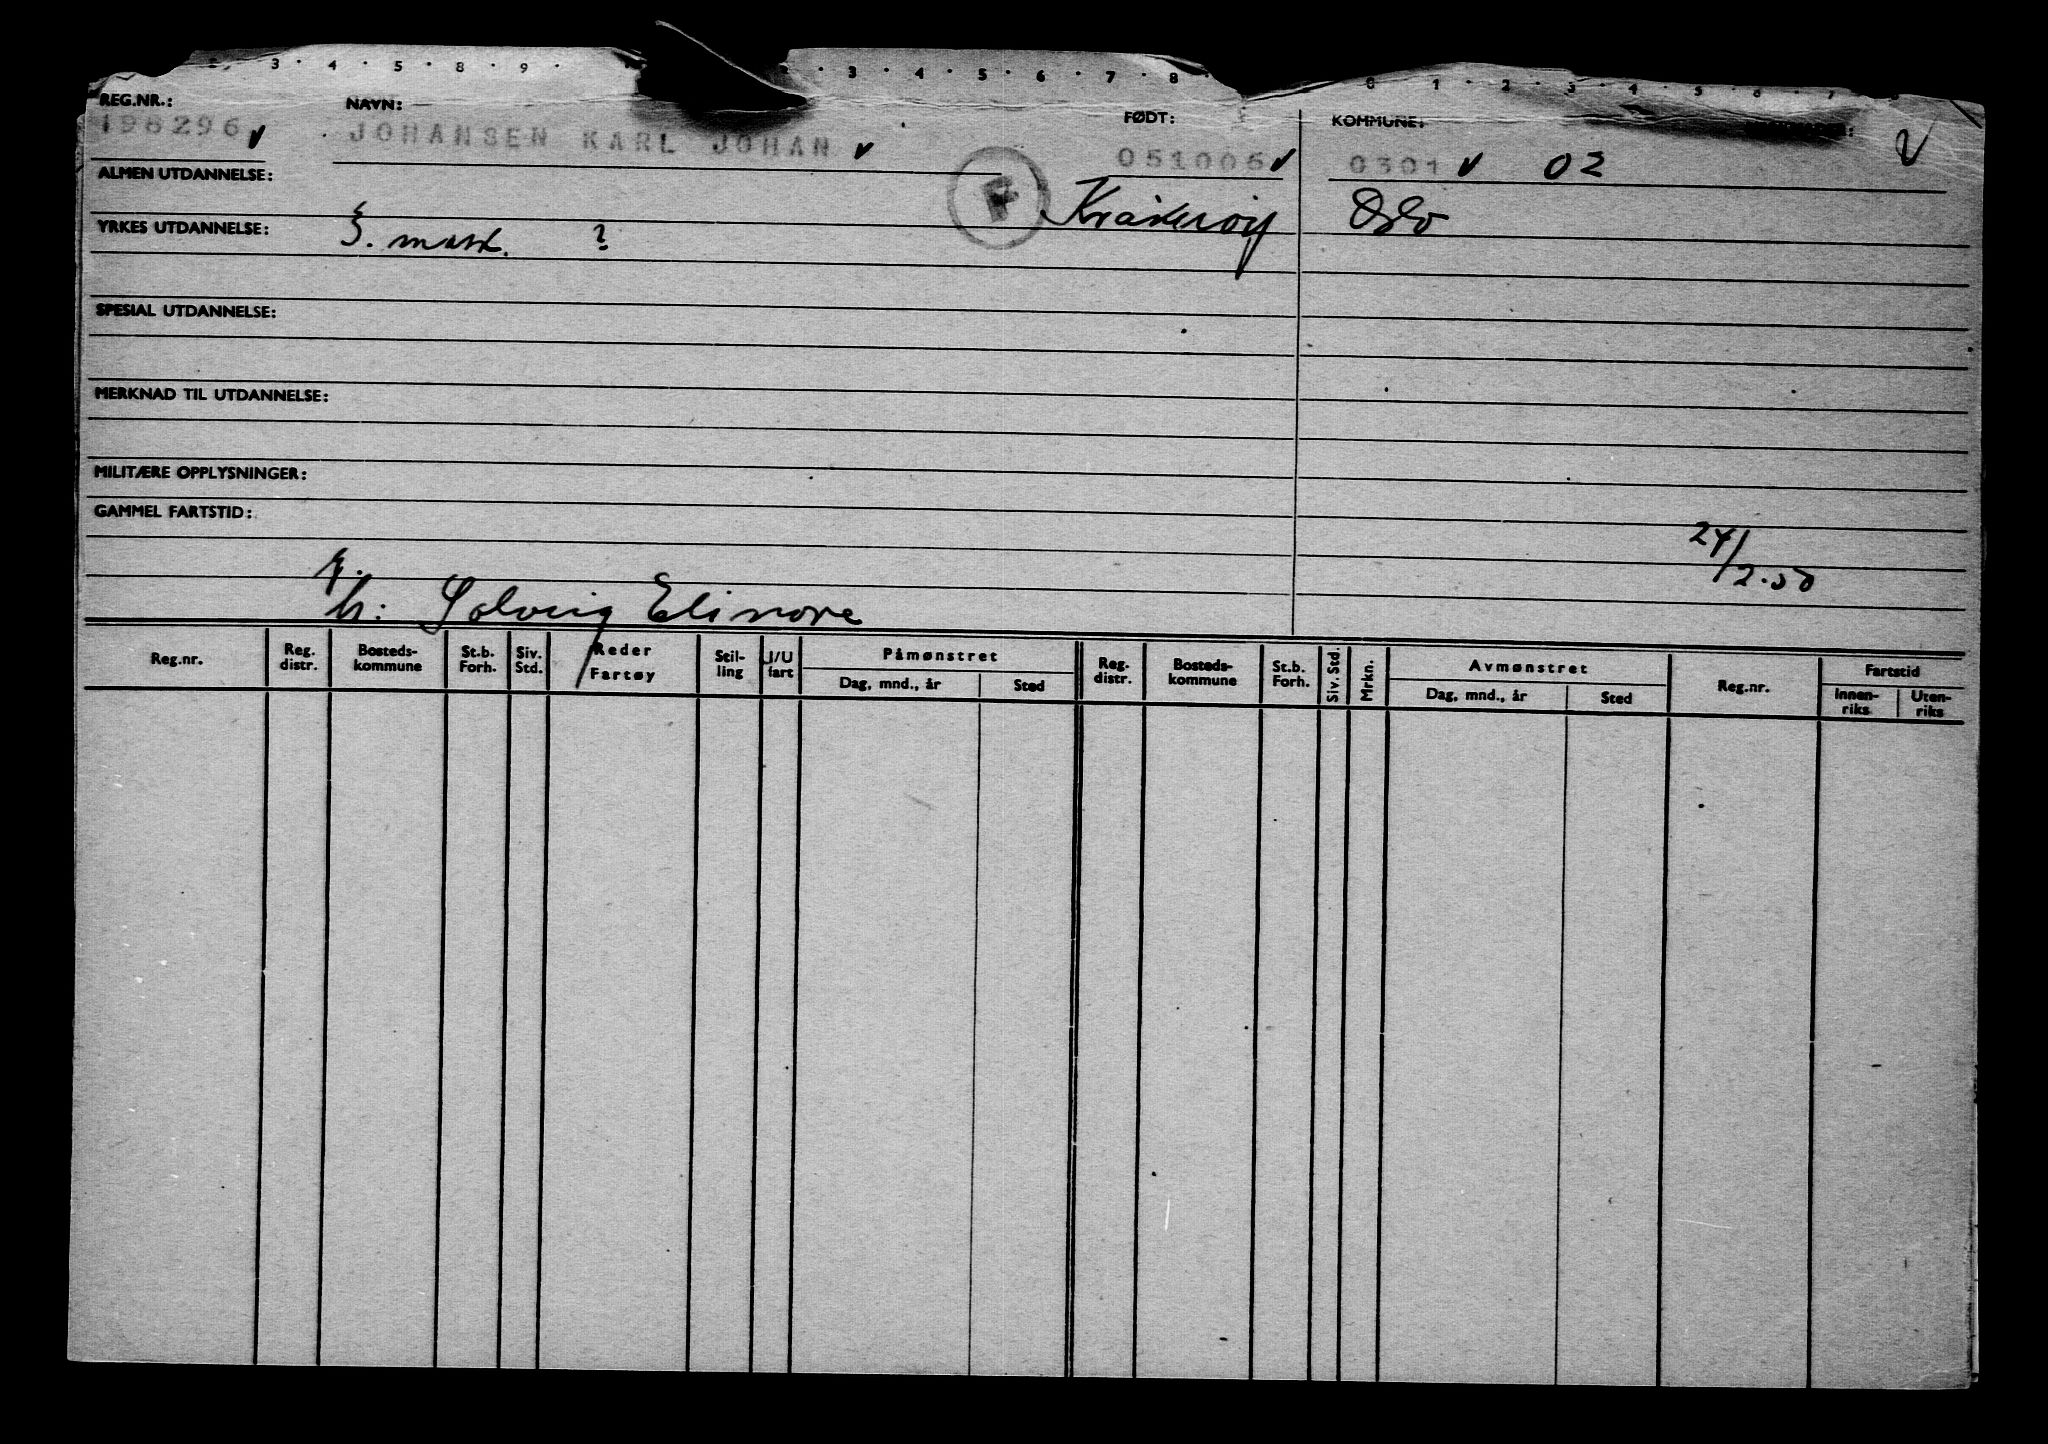 2 · 3 · 4 · 5 · 8 · 9 · 2 · 3 · 4 · 5 · 6 · 7 · 8 · 0 1 2 3 4 5 6 7 8
REG.NR.: NAVN: FØDT: KOMMUNE:
198296 ✓ JOHANSEN KARL JOHAN ✓ 051006 ✓ 0301 ✓ 02
ALMEN UTDANNELSE: F Kråkerøy Oslo
YRKES UTDANNELSE: 3. mask. ?
SPESIAL UTDANNELSE:
MERKNAD TIL UTDANNELSE:
MILITÆRE OPPLYSNINGER:
GAMMEL FARTSTID:
24/2.50
h: Solveig Elinore
Reg.nr. Reg. distr. Bosteds-kommune St.b. Forh. Siv. Std. Reder Fartøy Stil-ling I/U fart Påmønstret Dag, mnd., år Sted Reg. distr. Bosteds-kommune St.b. Forh. Siv. Std. Mrkn. Avmønstret Dag, mnd., år Sted Reg.nr. Fartstid Innen-riks Uten-riks